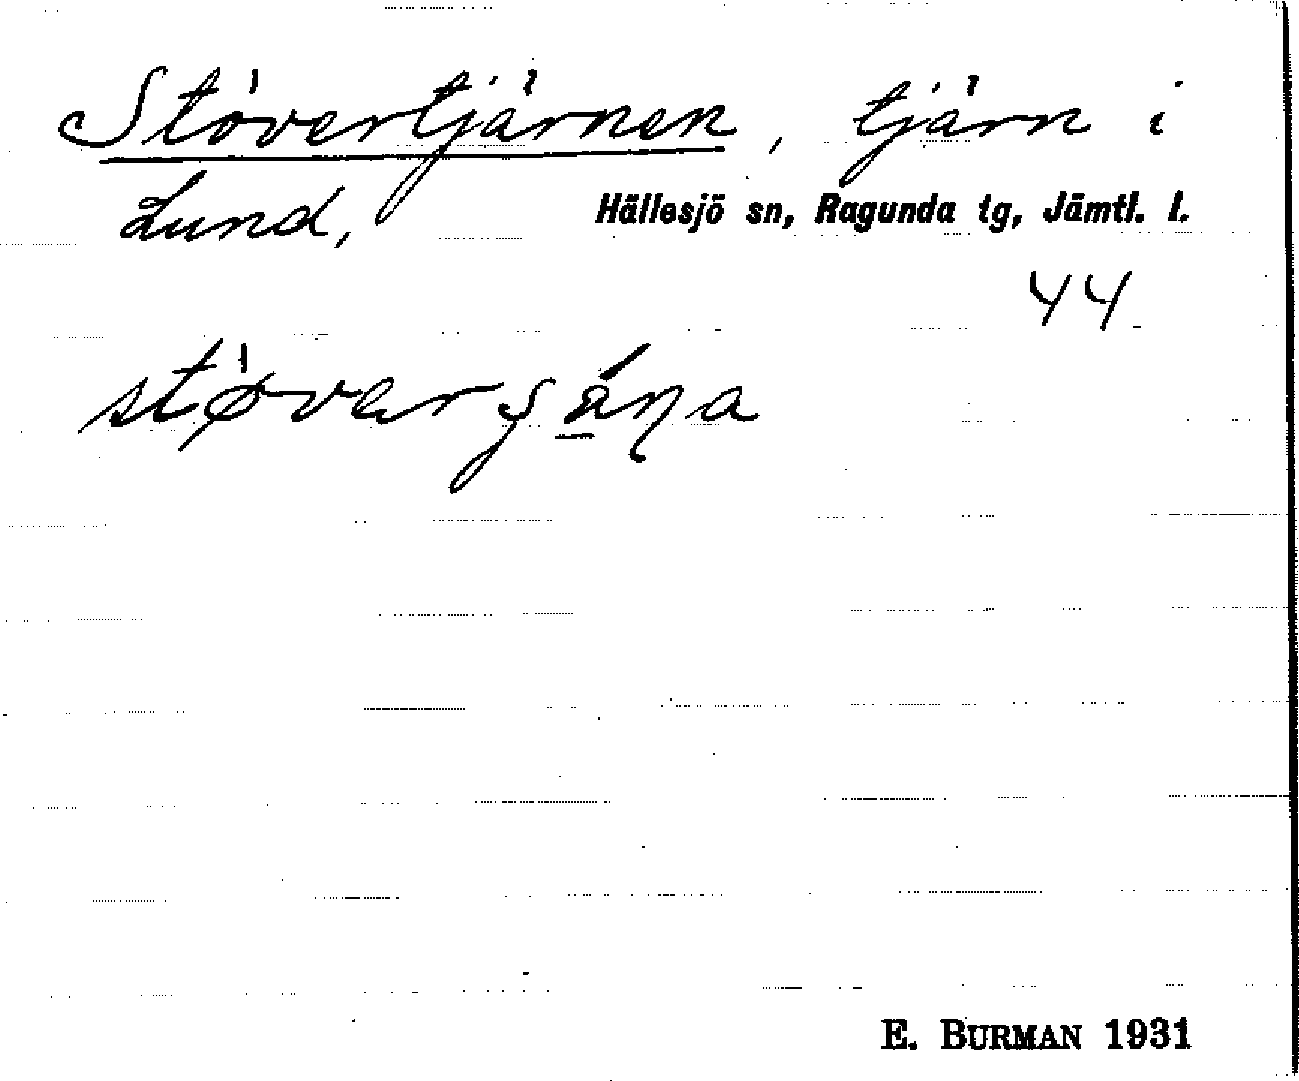 Stövertjärnen, tjärn i
Lund, Hällesjö sn, Ragunda tg, Jämtl. l.
44
E. BURMAN 1931